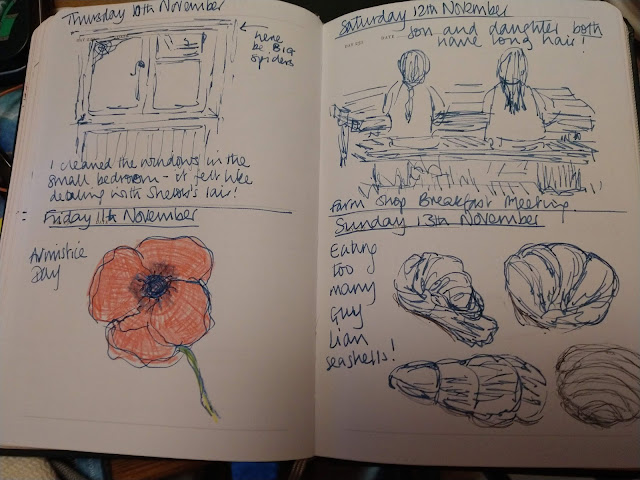 Thursday 10th November
here
be Big
Spiders
I cleaned the windows in the
small bedroom - it felt like
dealing with Shelob's lair!
Friday 11th November
Armistice
Day
Saturday 12th November
son and daughter both
have long hair!
Farm Shop Breakfast Meeting.
Sunday 13th November
Eating
too
many
Guy
Lian
seashells!